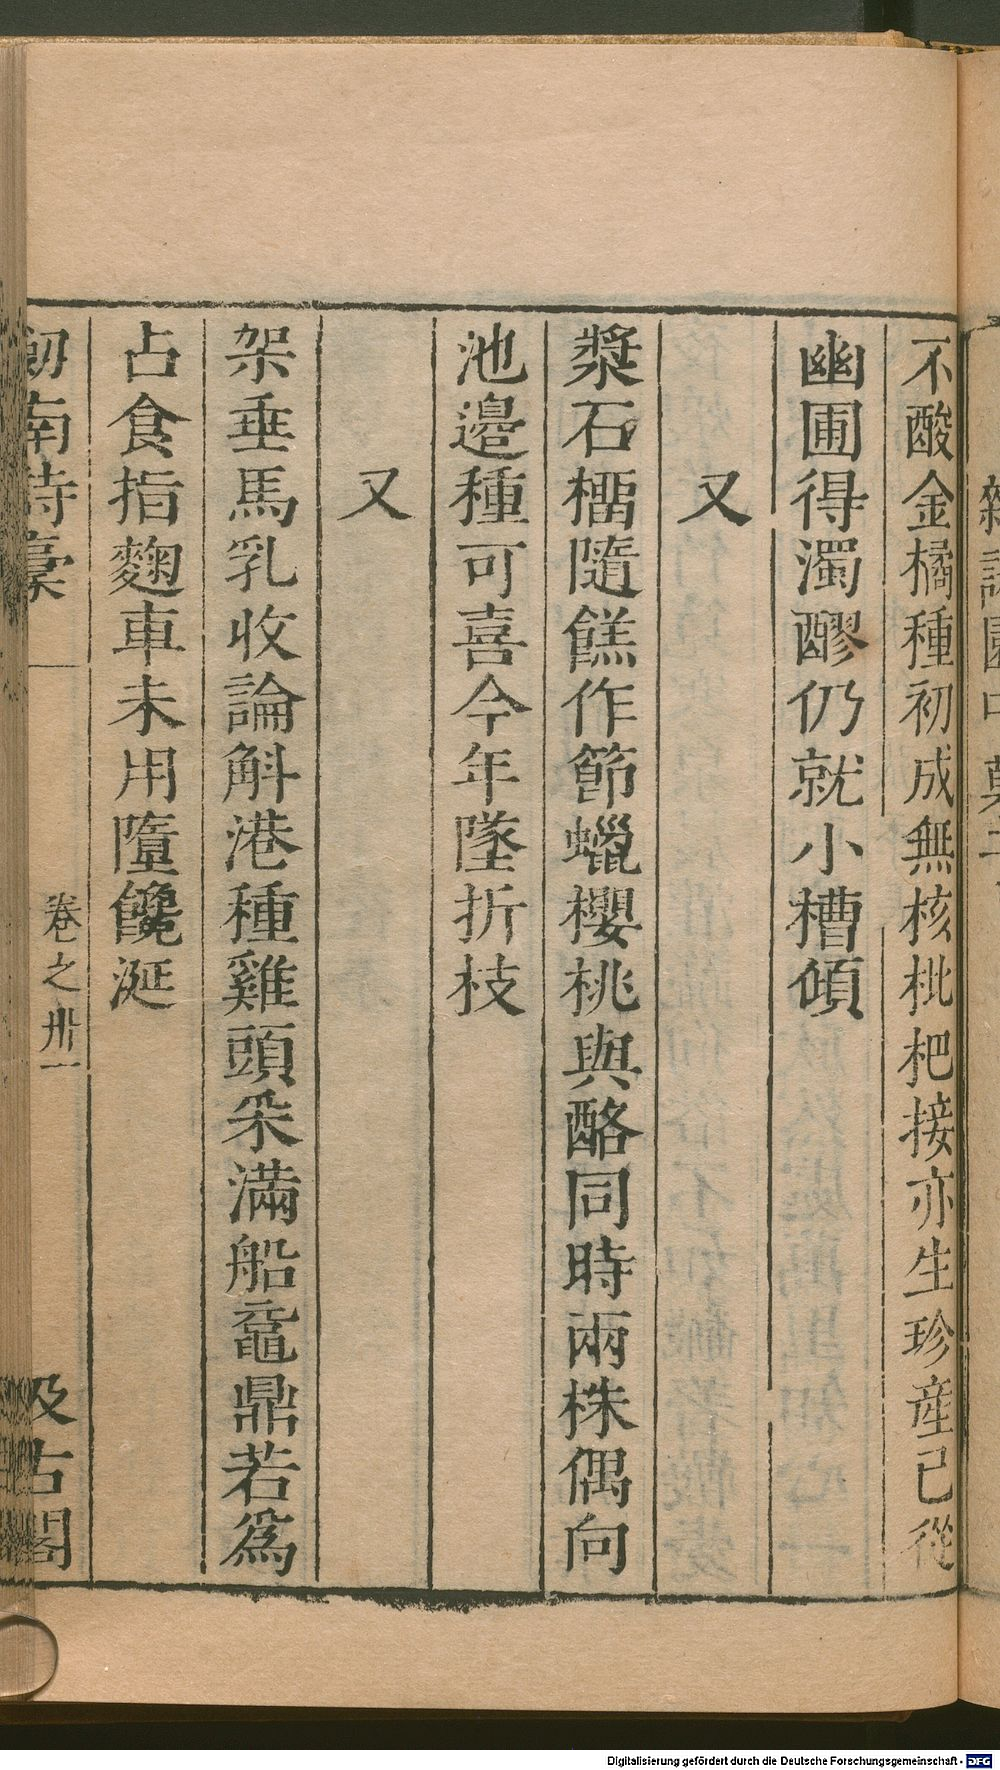 不酸金橘種初成無核枇杷接亦生珍産已從
幽圃得濁醪仍就小糟傾
又
漿石榴隨餻作節蠟櫻桃與酪同時兩株偶向
池邊種可喜今年墜折枝
又
架垂馬乳收論斛港種雞頭采滿船黿鼎若爲
占食指麴車未用墮饞涎
劒南詩稾
卷之卅一
汲古閣
Digitalisierung gefördert durch die Deutsche Forschungsgemeinschaft - DFG